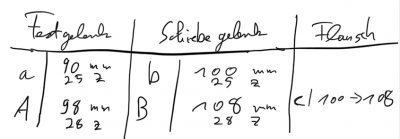 Festgelenk Schiebegelenk Flansch
a 90 mm b 100 mm
25 z 25 z
c/ 100 → 108
A 98 mm B 108 mm
28 z 28 z